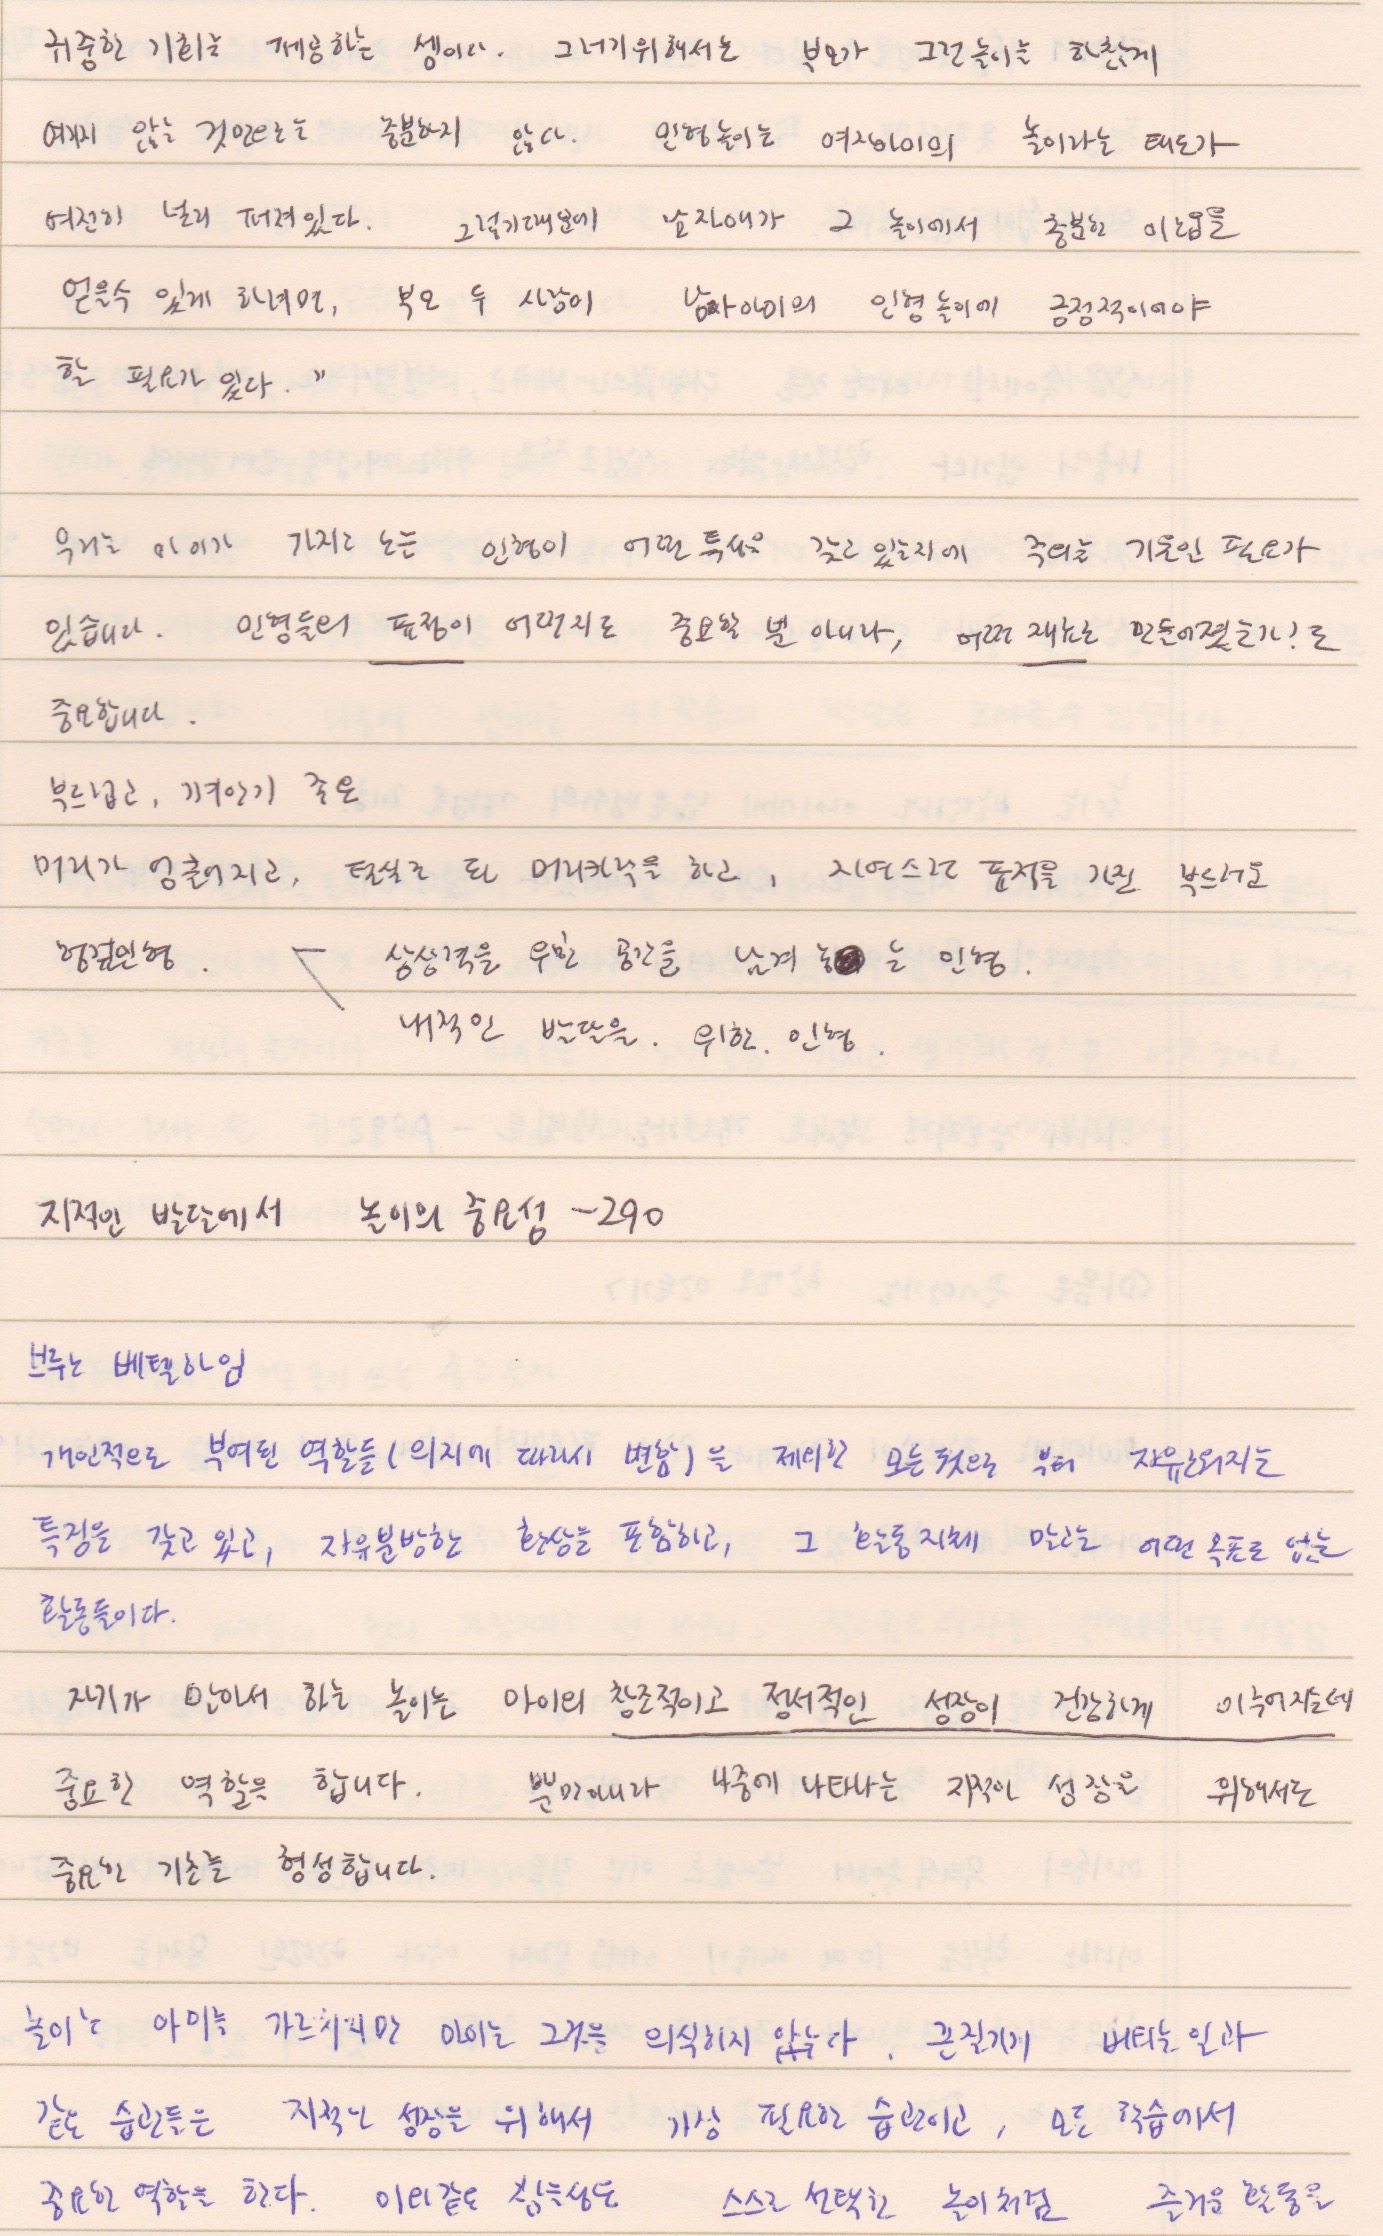 귀중한 기회를 제공하는 셈이다. 그러기위해서는 부모가 그런놀이를 하찮게
여기지 않는 것만으로는 충분하지 않다. 인형놀이는 여자아이의 놀이라는 태도가
여전히 널리 퍼져있다. 그렇기때문에 남자애가 그 놀이에서 충분한 이로움을
얻을수 있게 하려면, 부모 두 사람이 남자아이의 인형놀이에 긍정적이어야
할 필요가 있다."
우리는 아이가 가지고 노는 인형이 어떤 특성을 갖고 있는지에 주의를 기울인 필요가
있습니다. 인형들의 표정이 어떤지도 중요할 뿐 아니라, 어떤 재료로 만들어졌는가!도
중요합니다.
부드럽고, 껴안기 좋은
머리가 엉클어지고, 털실로 된 머리카락을 하고, 자연스런 표정을 가진 부드러운
헝겊인형. 상상력을 위한 공간을 남겨 놓는 인형.
내적인 발달을. 위한. 인형.
지적인 발달에서 놀이의 중요성 -290
브루노 베텔하임
개인적으로 부여된 역할들(의지에 따라서 변함)을 제외한 모든 것으로 부터 자유로워지는
특징을 갖고 있고, 자유분방한 환상을 포함하고, 그 활동자체 말고는 어떤 목표도 없는
활동들이다.
자기가 만아서 하는 놀이는 아이의 창조적이고 정서적인 성장이 건강하게 이루어지는데
중요한 역할을 합니다. 뿐만아니라 나중에 나타나는 지적인 성장을 위해서도
중요한 기초를 형성합니다.
놀이는 아이를 가르치지만 아이는 그것을 의식하지 않는다. 끈질기게 버티는 일과
같은 습관들은 지적인 성장을 위해서 가장 필요한 습관이고, 모든 학습에서
중요한 역할을 한다. 이와같은 참을성도 스스로 선택한 놀이처럼 즐거운 활동을